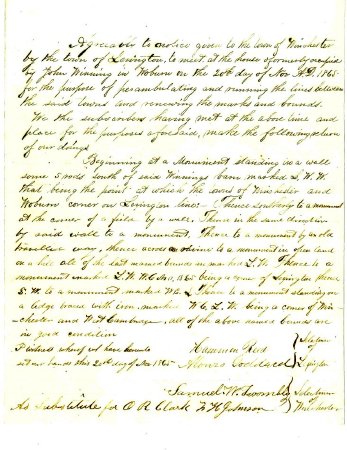 Agreeable to notice given to the town of Winchester
by the town of Lexington, to meet at the house formerly occupied
by John Winning in Woburn on the 20th day of Nov A.D. 1865
for the purpose of perambulating and running the lines between
the said towns and renewing the marks and bounds.
We the subscribers having met at the above time and
place for the purposes aforesaid, make the following return
of our doings
Beginning at a Monument standing in a wall
some 5 rods South of said Winnings barn marked L. W. W.
that being the point at which the towns of Winchester and
Woburn corner on Lexington line. Thence Southerly to a monument
at the corner of a field by a wall. Thence in the same direction
by said wall to a monument. Thence to a monument by an old
travelled way, thence across to a monument in open land
on a hill all of the last named bounds are marked L. W. Thence to a
monument marked L. W. 1865 being a corner of Lexington thence
S. W. to a monument marked W. L. Thence to a monument standing on
a ledge braced with iron marked W. C. L. W. being a corner of Win-
chester and West Cambridge, all of the above named bounds are
in good condition
In witness whereof we have hereunto
set our hands this 20th day of Nov 1865
Hammon Reed
Alonzo Goddard
Selectmen
of
Lexington
Samuel W. Twombly
As Substitute for O. R. Clark
Selectmen
of
Winchester